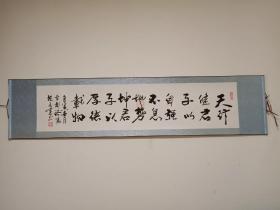 天行
健君
子以
自強
不息
地势
坤君
子以
厚德
載物